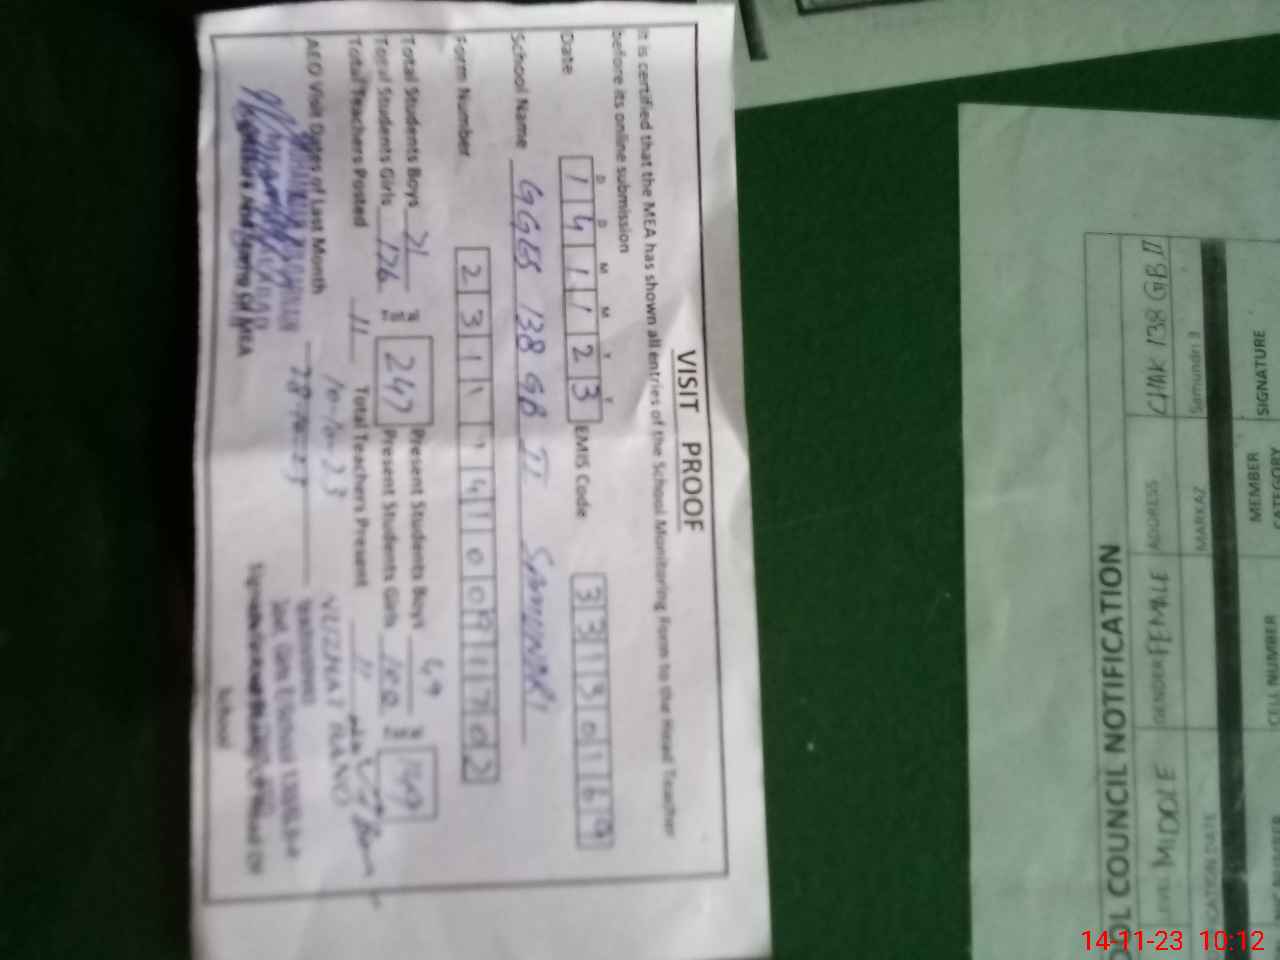 VISIT PROOF
It is certified that the MEA has shown all entries of the School Monitoring Form to the Head Teacher
before its online submission
D D M M Y Y
Date 1 4 1 1 2 3 EMIS Code 3 3 1 3 0 1 6 9
School Name GGES 138 GB II SAMUNDRI
Form Number 2 3 1 1 1 4 1 0 0 9 1 1 7 0 2
Total Students Boys 71 Present Students Boys 69
Total Students Girls 176 247 Present Students Girls 149
Total Teachers Posted 11 Total Teachers Present 11
10-10-23
AEO Visit Dates of Last Month
Signature And Name Of MEA
School
OOL COUNCIL NOTIFICATION
MIDDLE GENDER FEMALE ADDRESS CHAK 138 GB II
ICATION DATE MARKAZ Samundri 3
CELL NUMBER MEMBER CATEGORY SIGNATURE
14-11-23 10:12